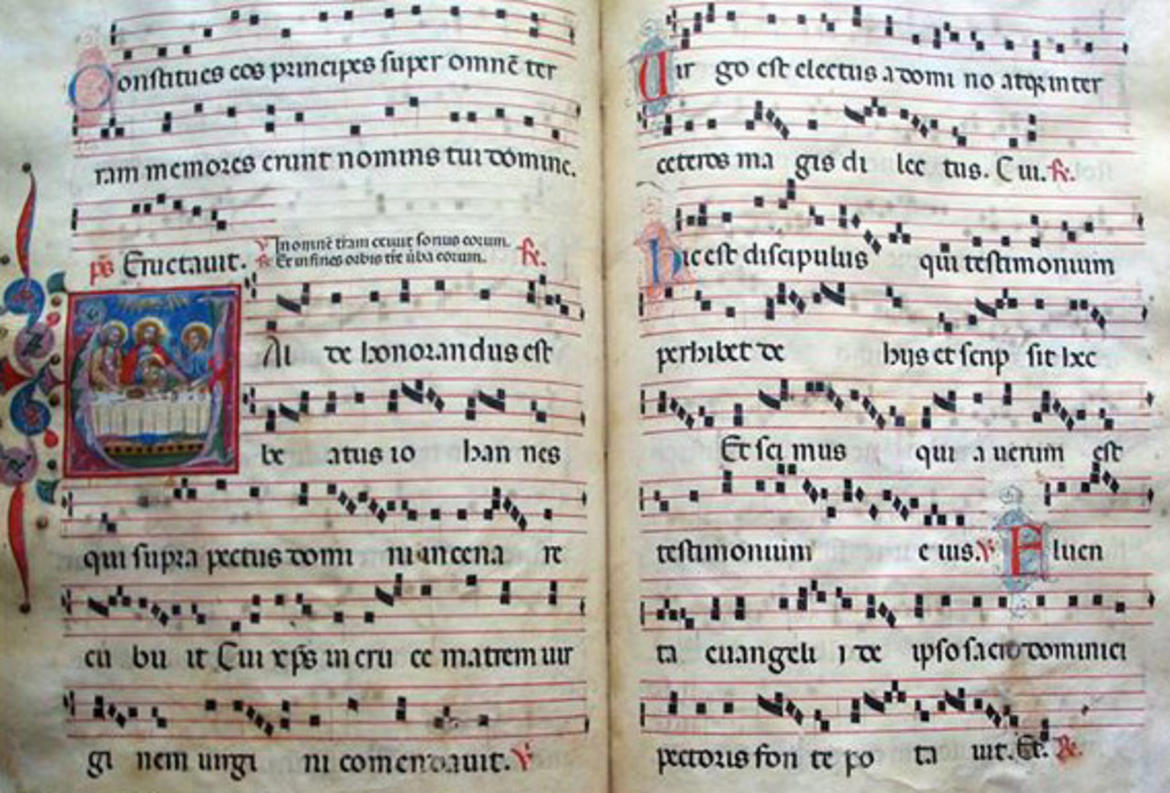 Constitues eos principes super omnē ter
ram memores erunt nominis tui domine.
ps̄ Eructauit. ℣ In omnē tram exiuit sonus eorum. ℟.
℟ Et in fines orbis tre ūba eorum.
Ual de honorandus est
be atus io han nes
qui supra pectus domi ni in cena re
cu bu it Cui xp̄s in cru ce matrem uir
gi nem uirgi ni comendauit. ℣
Uir go est electus a domi no atqꝫ inter
ceteros ma gis di lec tus. Cui. ℟.
Hic est discipulus qui testimonium
perhibet de hijs et scrip sit hec
Et sci mus quia uerum est
testimonium eius. ℣ Fluen
ta euangeli i de ipso sacro dominici
pectoris fon te po ta uit. Et. ℟.